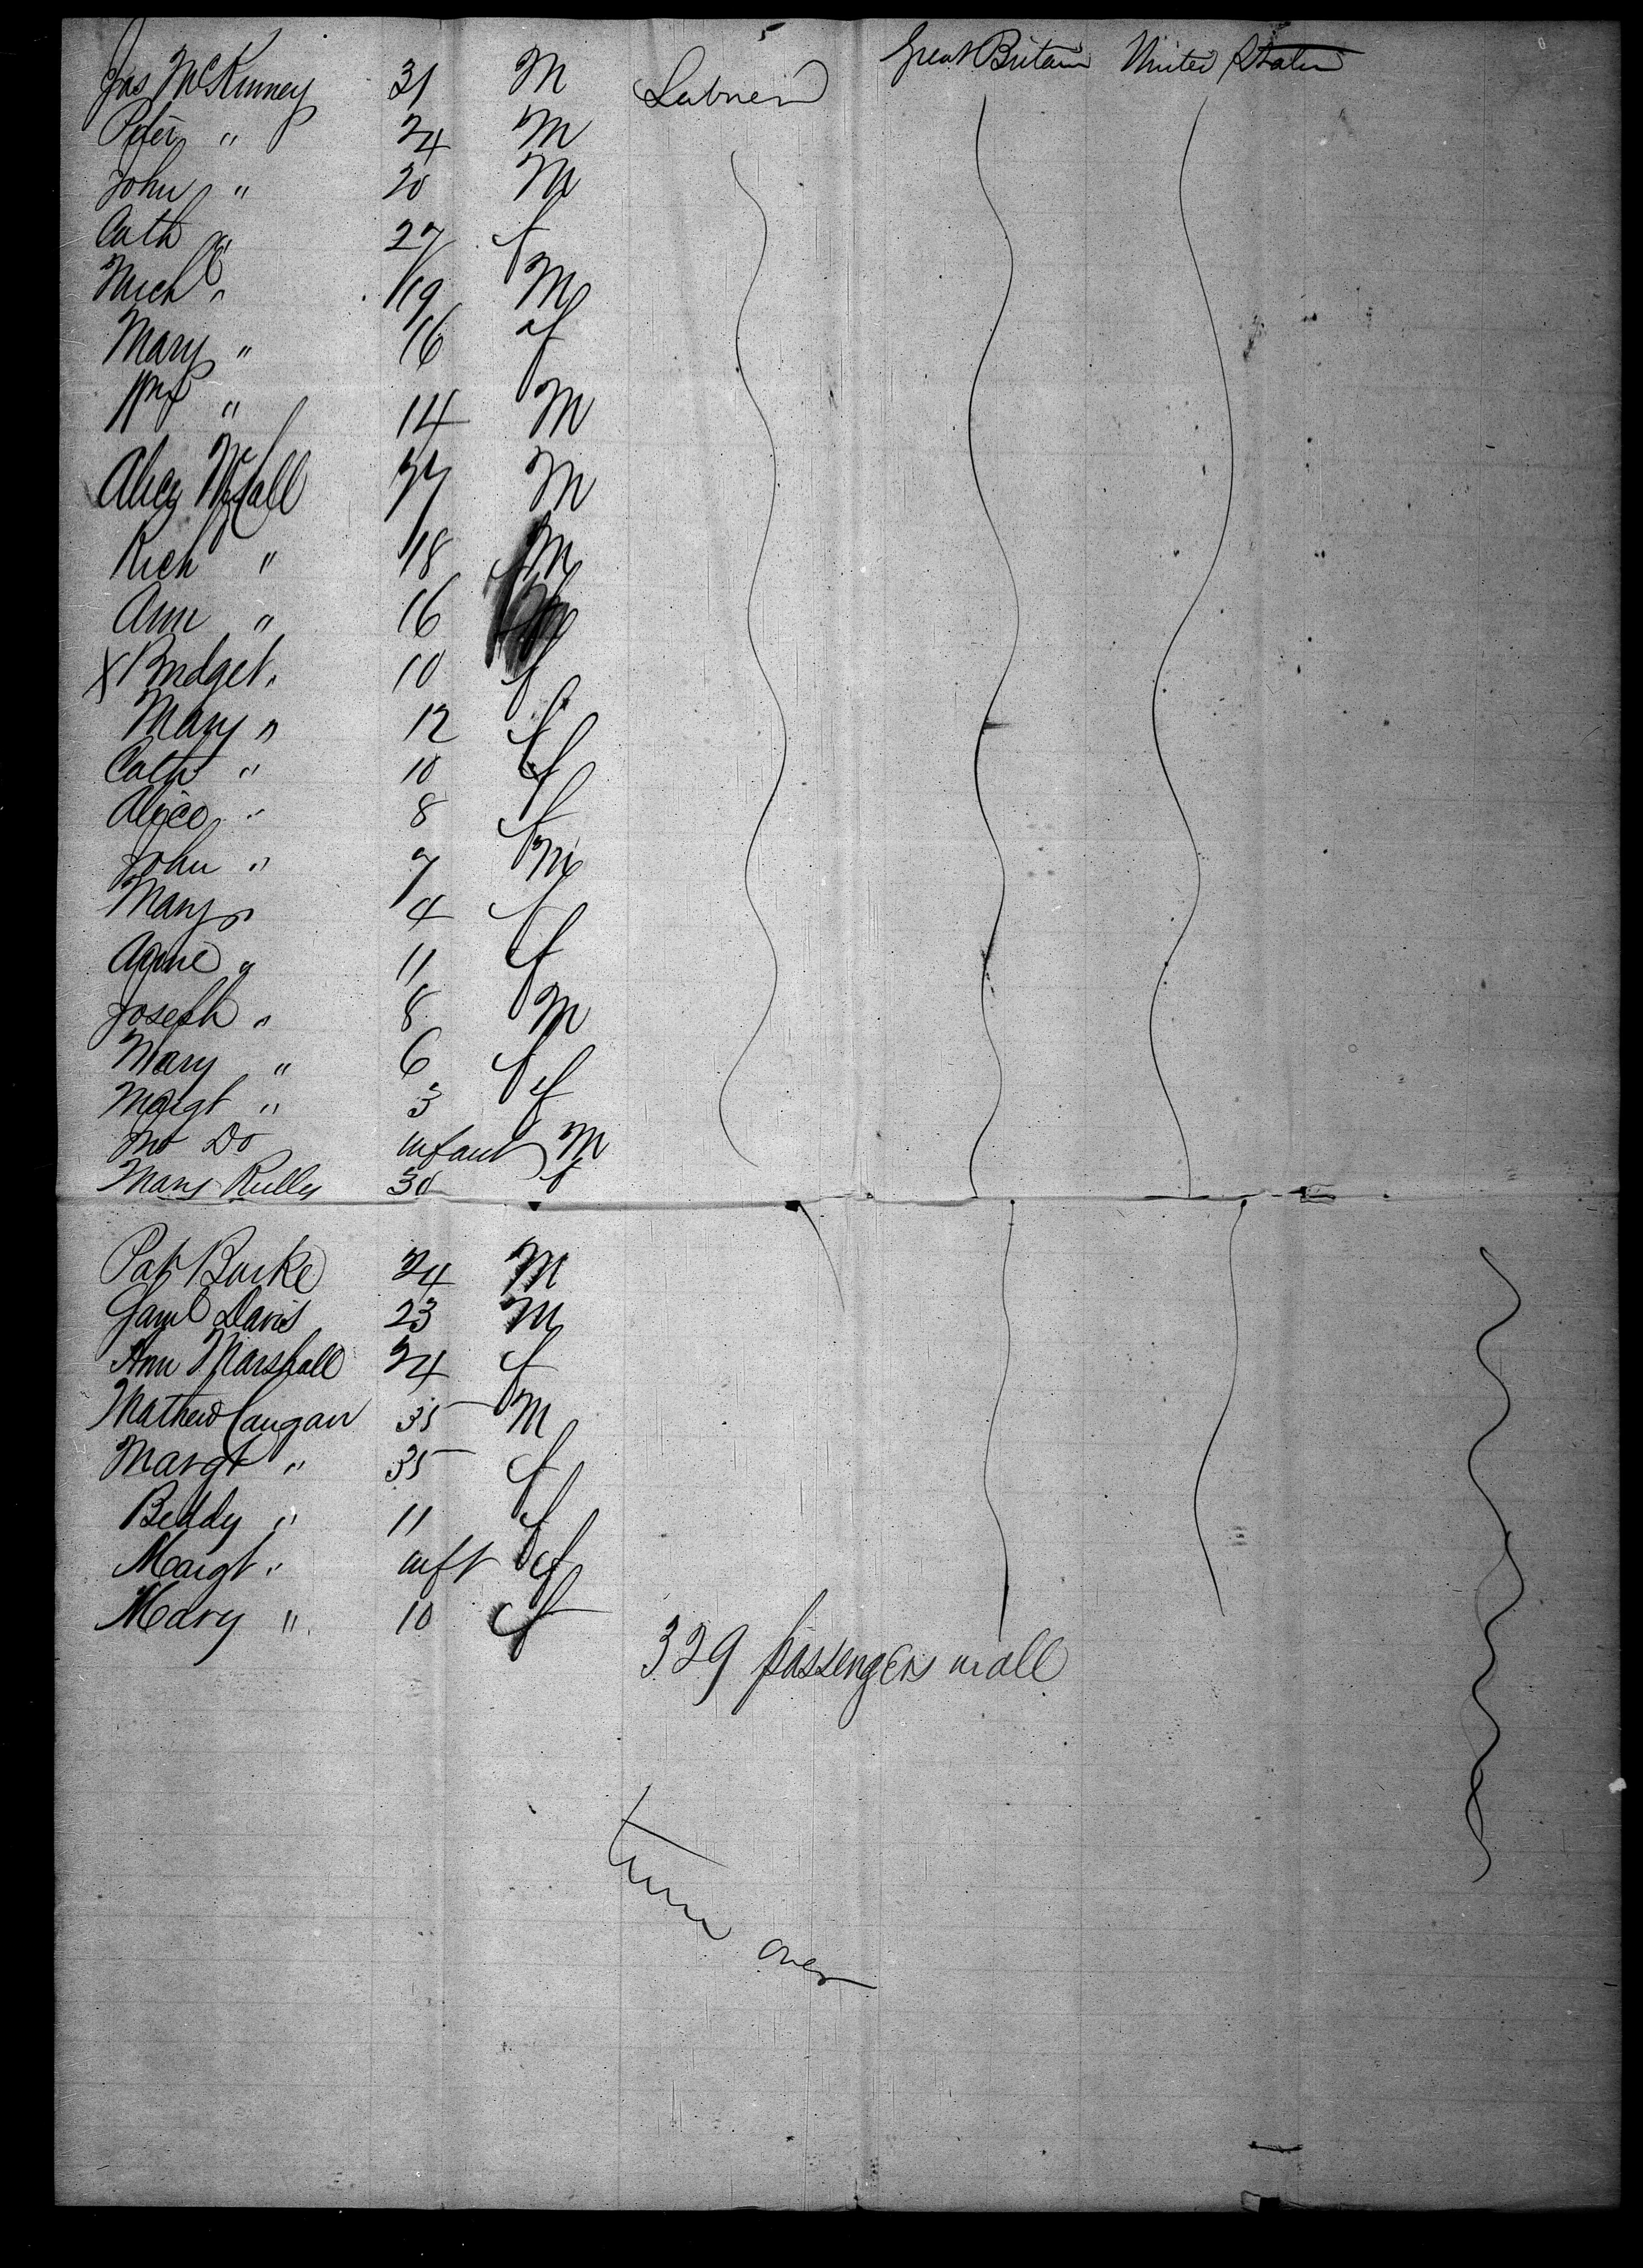 Jas McKinney 31 M Labrer Great Britain United States
Peter " 24 M
John " 20 M
Cath " 27 f
Mich " 19 M
Mary " 16 f
Wm " 14 M
Alicy McCall 77 M
Rich " 18 M
Ann " 16
X Bridget " 10 f
Mary " 12 f
Cath " 10 f
Alice " 8 f
John " 7 M
Mary " 4 f
Annie " 11 f
Joseph " 8 M
Mary " 6 f
Margt " 3 f
Do infant M
Mary Rielly 30 f
Pat Burke 24 M
Saml Davis 23 M
Ann Marshall 24 f
Mathew Caugan 35 M
Margt " 35 f
Beddy " 11 f
Margt " inft f
Mary " 10 f
329 passengers in all
turn over